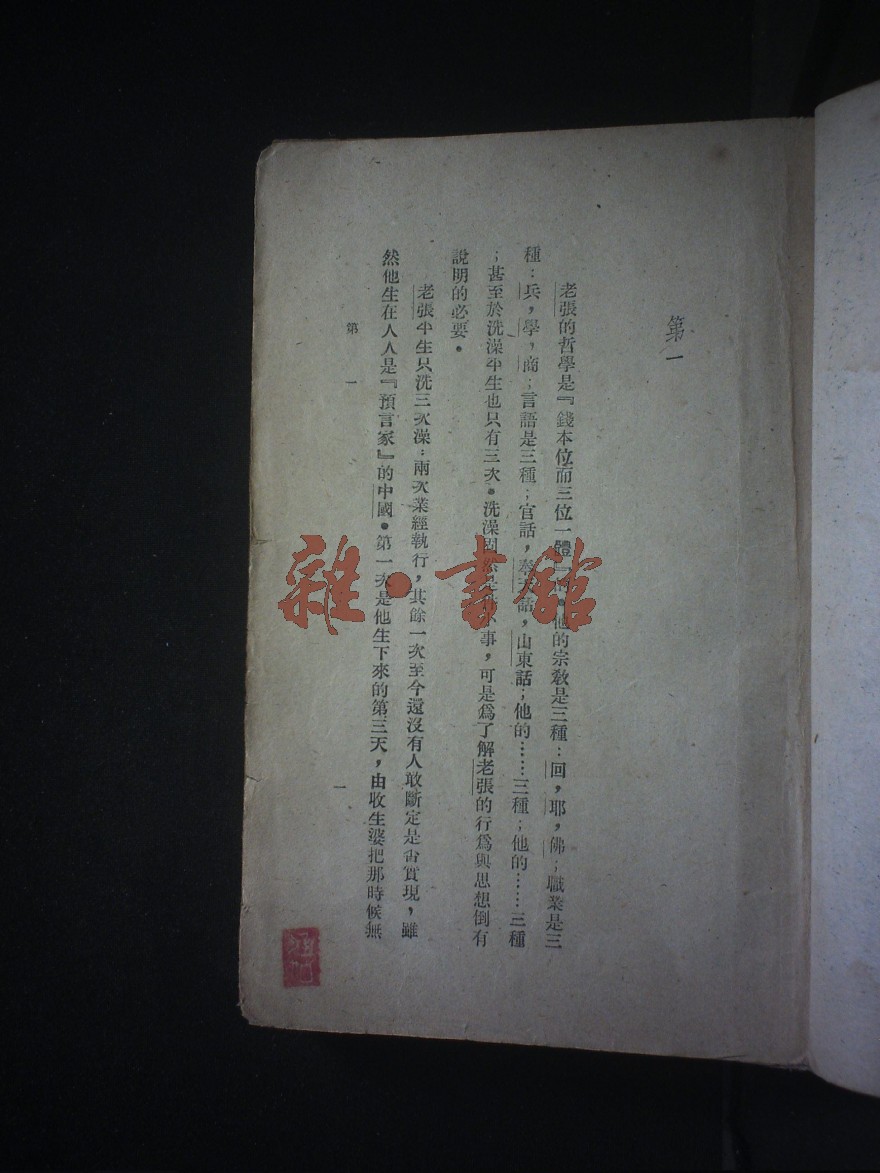 第一
老張的哲學是『錢本位而三位一體』的。他的宗教是三種：回，耶，佛；職業是三
種：兵，學，商；言語是三種；官話，奉天話，山東話；他的……三種；他的……三種
；甚至於洗澡平生也只有三次。洗澡固然是小事，可是爲了解老張的行爲與思想倒有
說明的必要。
老張平生只洗三次澡：兩次業經執行，其餘一次至今還沒有人敢斷定是否實現，雖
然他生在人人是『預言家』的中國。第一次是他生下來的第三天，由收生婆把那時候無
第一
一
雜·書館